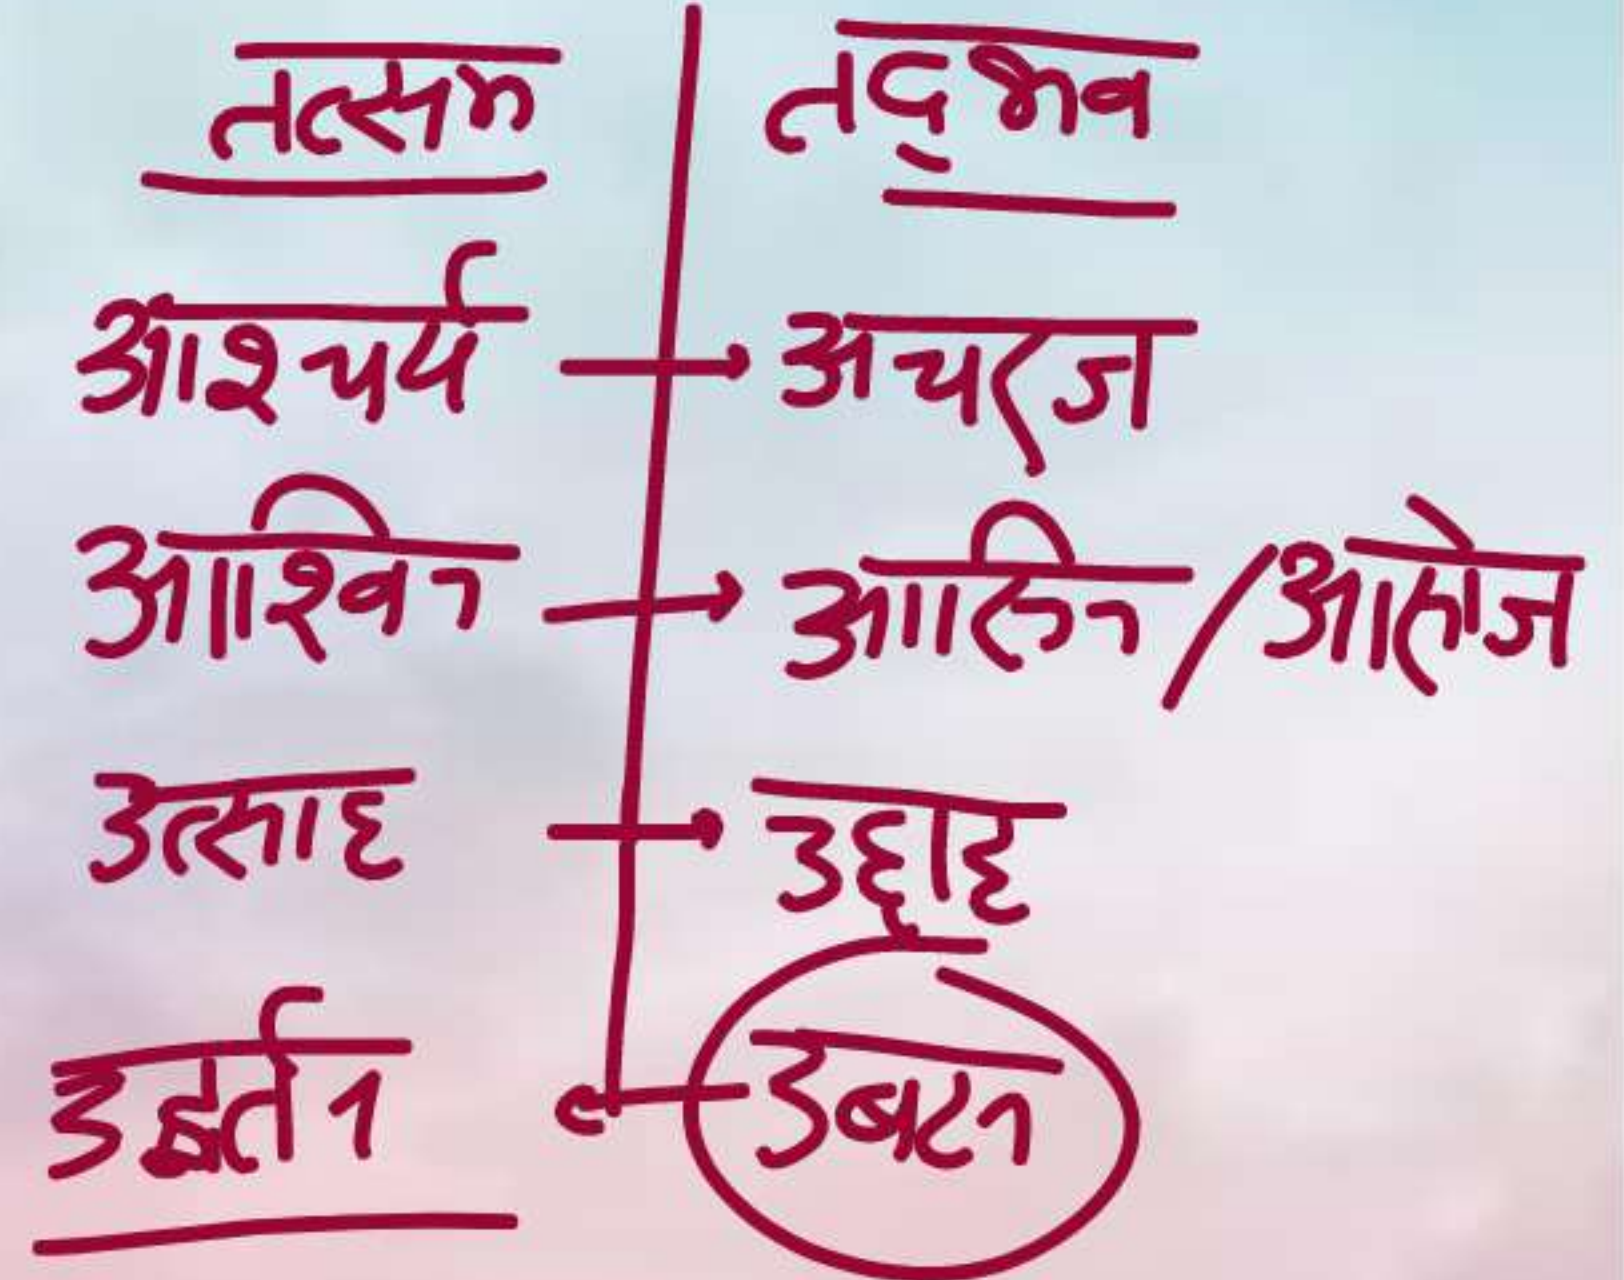 तत्सम तद्भव
आश्चर्य → अचरज
आश्विन → आसिन / आसोज
उत्साह → उछाह
उद्वर्तन उबटन